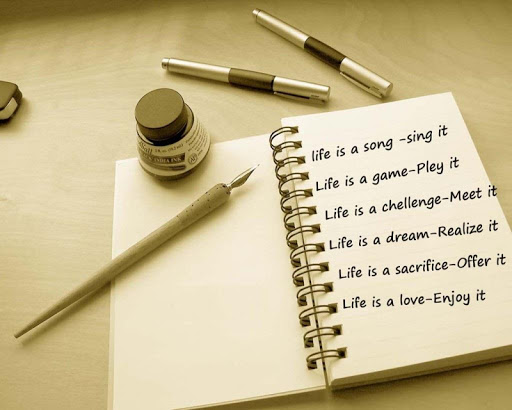 INDIA INK
life is a song -sing it
Life is a game-Pley it
Life is a chellenge-Meet it
Life is a dream-Realize it
Life is a sacrifice-Offer it
Life is a love-Enjoy it